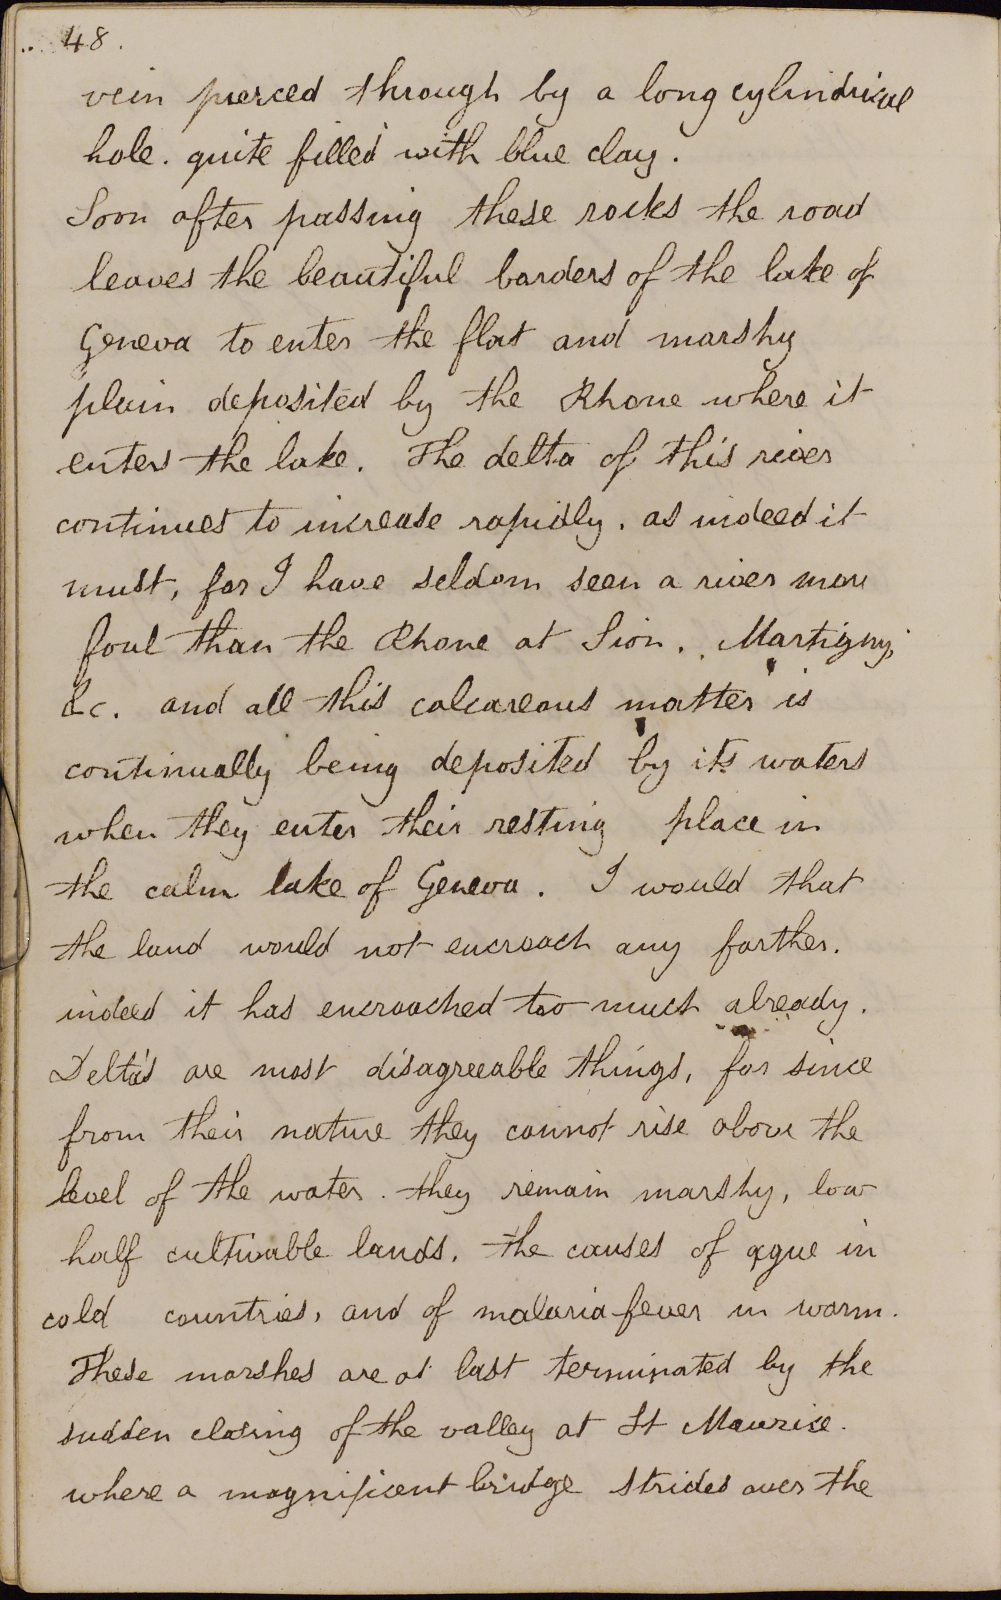 48.
vein pierced through by a long cylindrical
hole. quite filled with blue clay.
Soon after passing these rocks the road
leaves the beautiful borders of the lake of
Geneva to enter the flat and marshy
plain deposited by the Rhone where it
enters the lake. The delta of this river
continues to increase rapidly. as indeed it
must, for I have seldom seen a river more
foul than the Rhone at Sion. Martigny,
&c. and all this calcareous matter is
continually being deposited by its waters
when they enter their resting place in
the calm lake of Geneva. I would that
the land would not encroach any farther.
indeed it has encroached too much already.
Delta's are most disagreeable things, for since
from their nature they cannot rise above the
level of the water. they remain marshy, low
half cultivable lands. the causes of ague in
cold countries, and of malaria fever in warm.
These marshes are at last terminated by the
sudden closing of the valley at St Maurice.
where a magnificent bridge strides over the